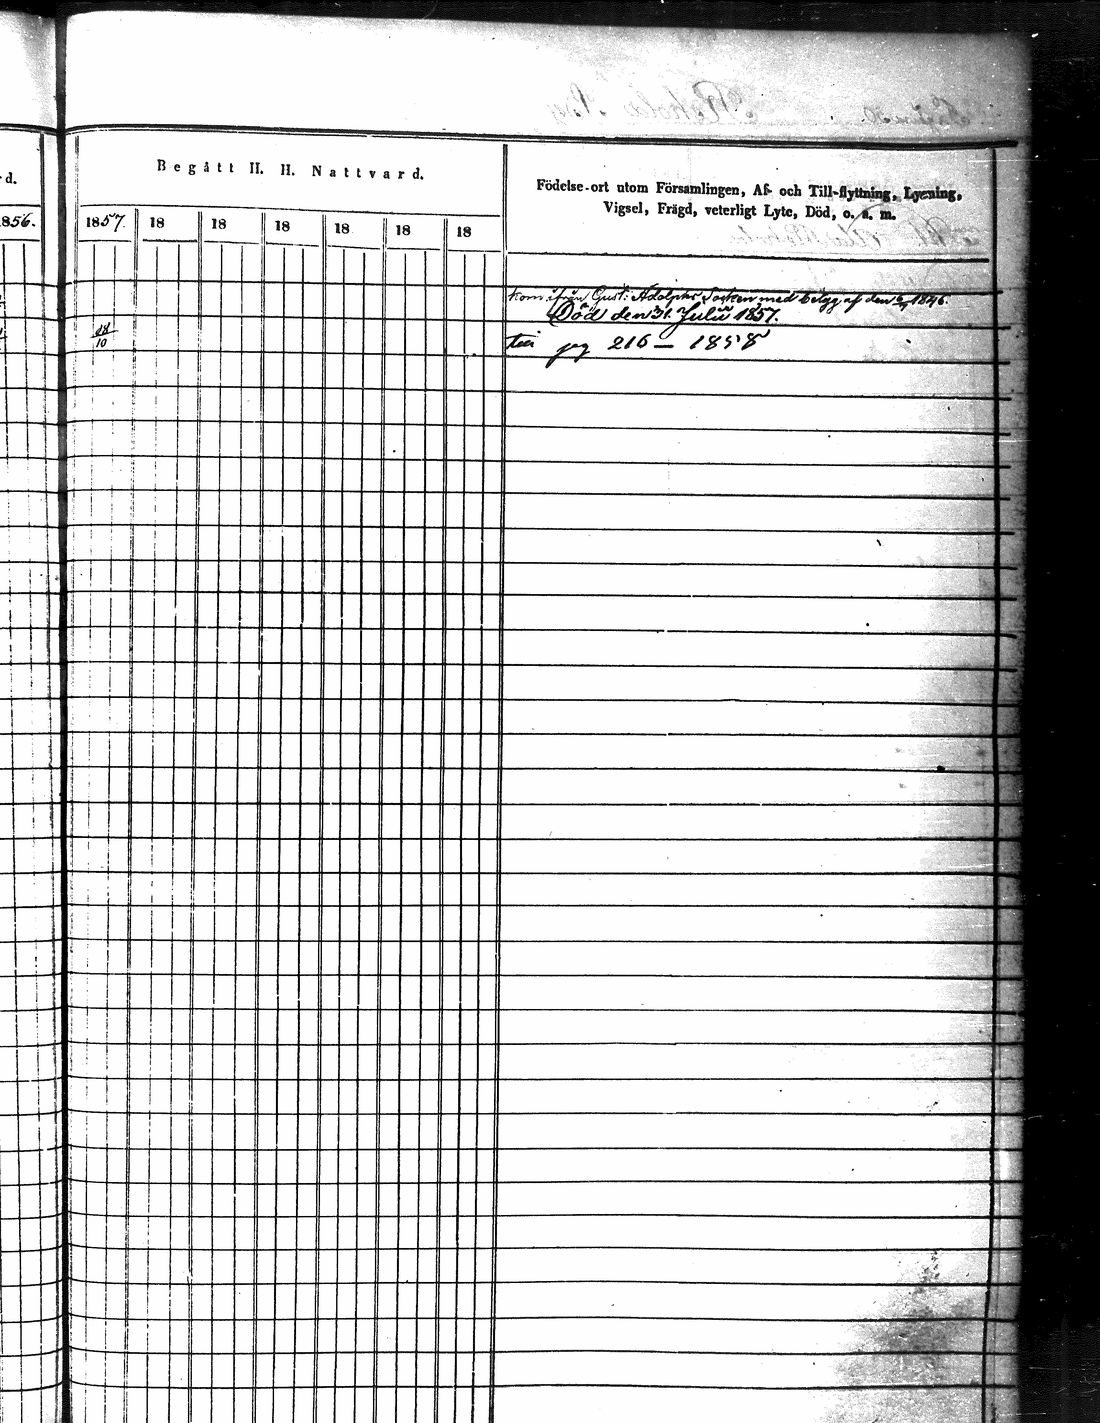 Begått H. H. Nattvard.
Födelse-ort utom Församlingen, Af- och Till-flyttning, Lysning,
Vigsel, Frägd, veterligt Lyte, Död, o. s. m.
d.
1856.
1857. 18 18 18 18 18 18
kom ifrån Gust: Adolphs Socken med betyg af den 1846.
Död den 31. Julii 1857.
10
pag 216 — 1858